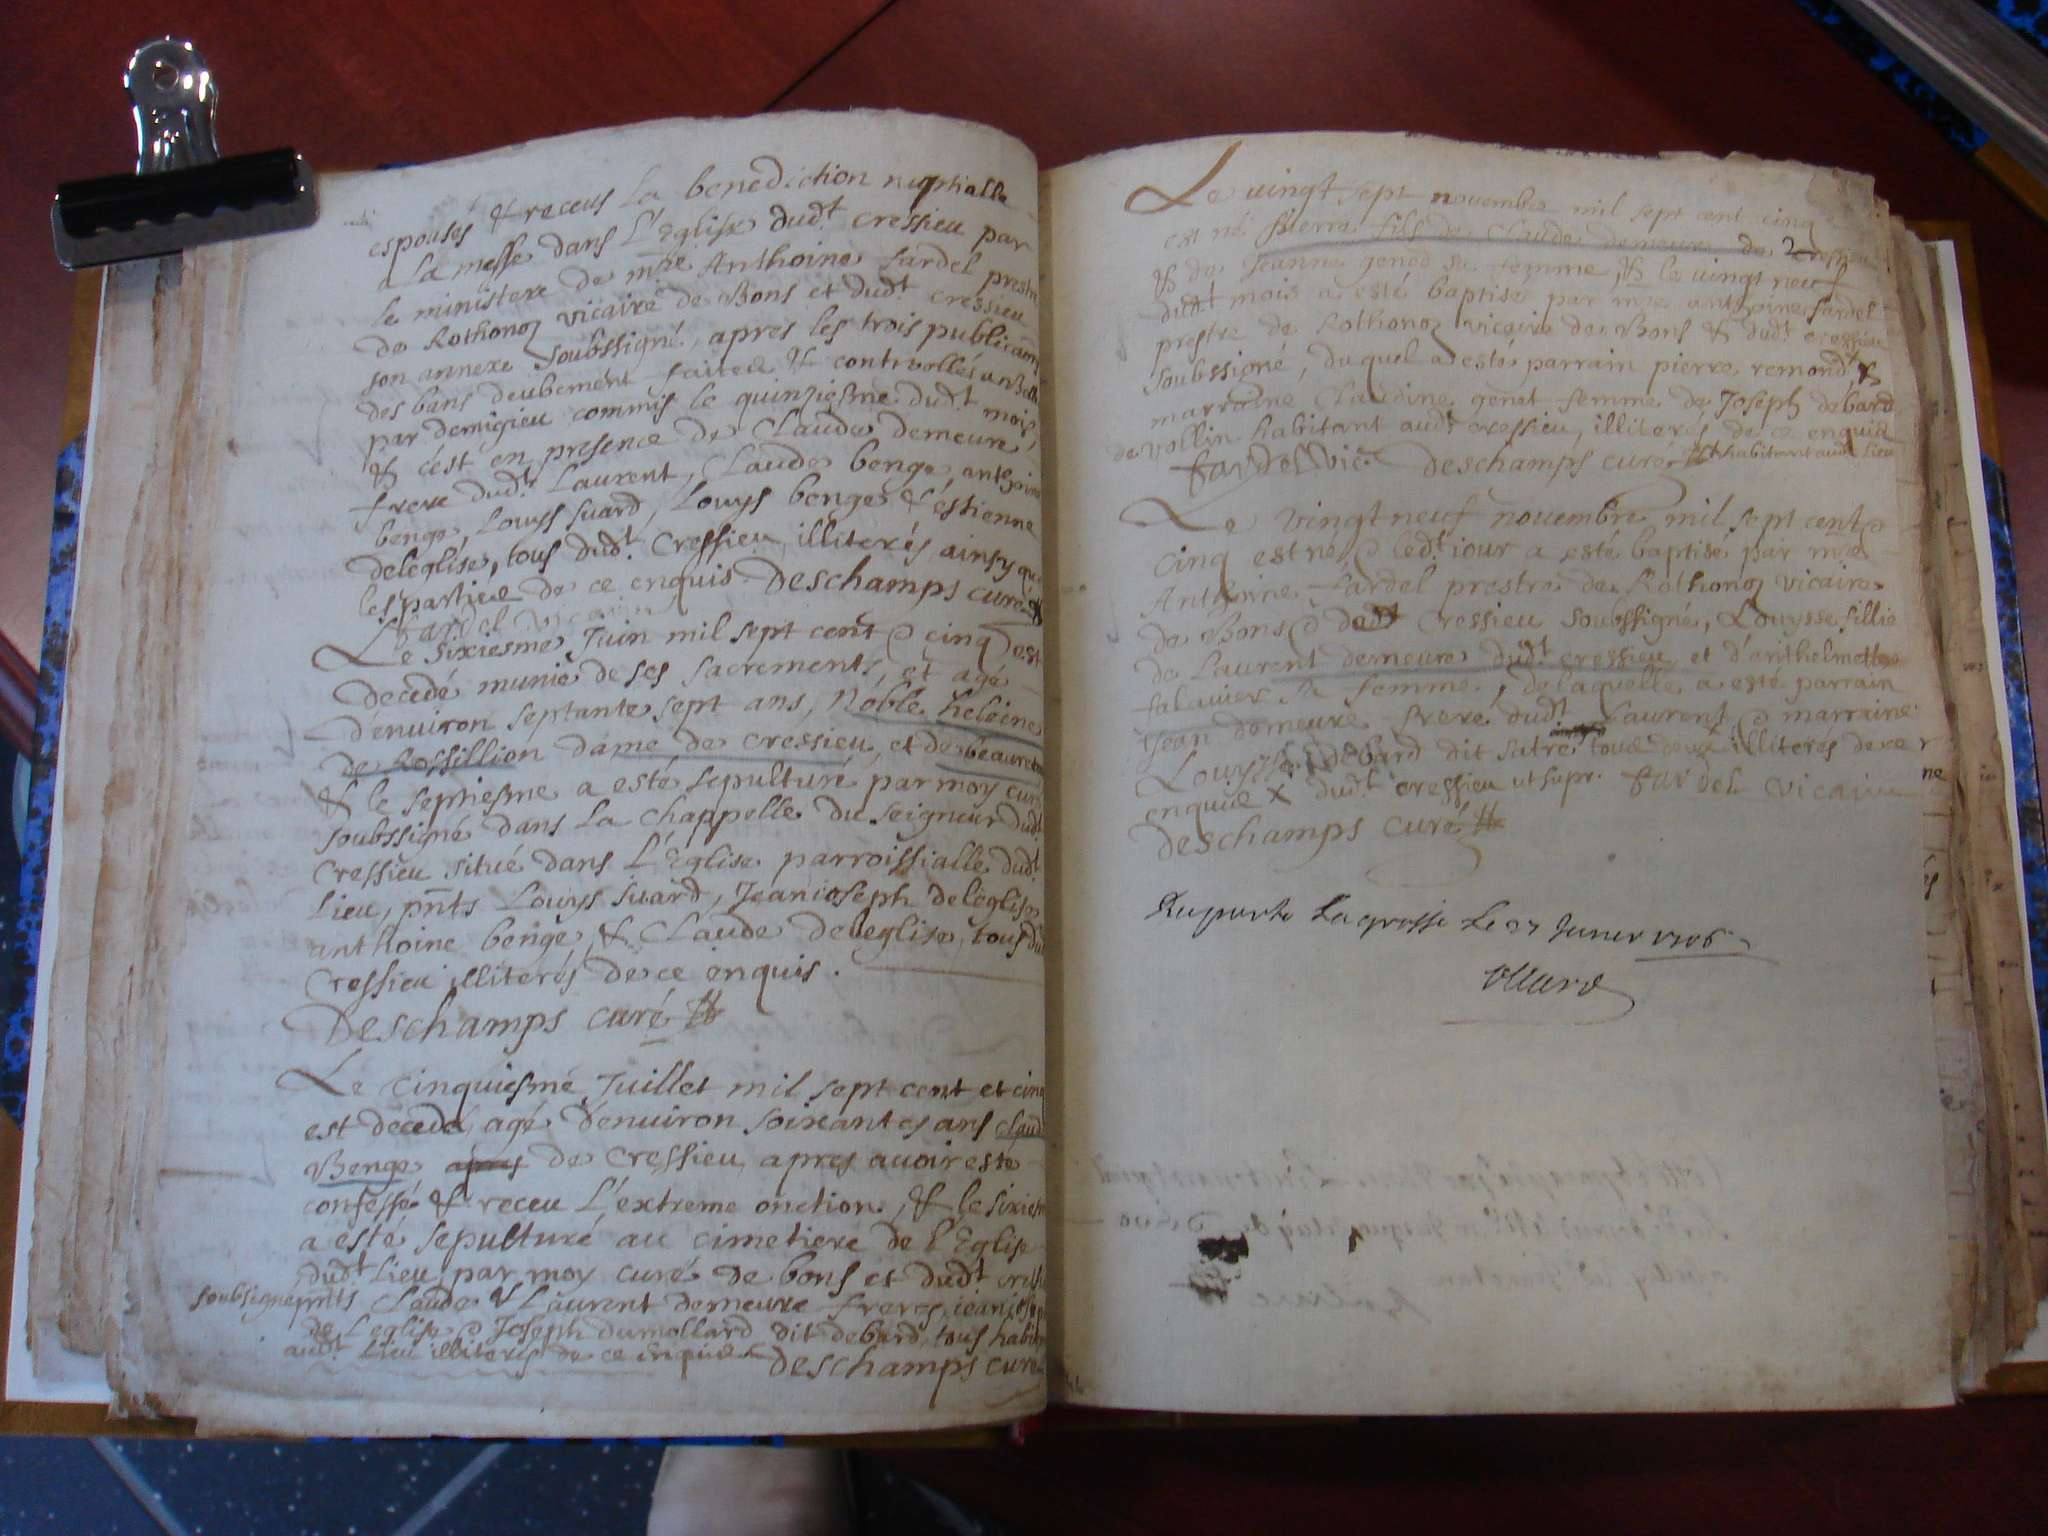 espousés & receus la benediction nuptialle
a La messe dans L'Eglise dud.t cressieu par
le ministere de m.re Anthoine fardel prestre
de Rothonoz vicaire de Bons et dud.t cressieu
son annexe soubssigné, apres les trois publicaons
des bans deubement faites & controllés
par demigieu commis le quinziesme dud.t mois,
& cest en presence de Claude demeure,
frere dud.t Laurent, Claude benge, anthoine
benge, Louys suard, Louys benge & estienne
deleglise, tous dud.t Cressieu, illiterés ainsy que
les parties de ce enquis. Deschamps curé
fardel vicaire
Le sixiesme Juin mil sept cent & cinq est
decedé munie de ses sacrements, et agé
d'enuiron septante sept ans, Noble heleine
de Rossillion dame de cressieu, et de beauretour
& le septiesme a esté sepulturé par moy curé
soubssigné dans La chappelle du seigneur dud.t
Cressieu situé dans L'Eglise parroissialle dud.t
Lieu, pnts Louys suard, Jeanioseph deleglise
anthoine benge, & Claude deleglise, tous du
Cressieu illiterés de ce enquis.
Deschamps curé
Le cinquiesme Juillet mil sept cent et cinq
est decedé, agé d'enuiron soixantes ans Claude
Benge apres de Cressieu, apres auoir esté
confessé & receu L'extreme onction, & le sixiesme
a esté sepulturé au cimetiere de l'Eglise
dud.t Lieu, par moy curé de bons et dud.t
soubsigné pnts Claude & Laurent demeure freres, jean
de Leglise & Joseph dumollard dit debard, tous
aud.t Lieu illiterés de ce enquis Deschamps curé
Le vingt sept nouembre mil sept cent cinq
est né Pierre fils de Claude demeure de cressieu
& de Jeanne genod sa femme, & le vingt neuf
dud.t mois a esté baptisé par m.re anthoine fardel
prestre de Rothonoz vicaire de Bons & dud.t cressieu
soubssigné, duquel a esté parrain pierre remond, &
marraine Claudine genet femme de Joseph debard
de vollin habitant aud.t cressieu, illiterés de ce enquis
fardel vic. Deschamps curé & habitant aud. Lieu
Le vingt neuf nouembre mil sept cent &
cinq est né & led.t iour a esté baptisé par m.re
Anthoine fardel prestre de Rothonoz vicaire
de Bons & dud.t Cressieu soubssigné, Louysse fillie
de Laurent demeure dud.t cressieu et d'anthelmette
falauier sa femme, de laquelle a esté parrain
Jean demeure frere dud.t Laurent & marraine
Louysse debard dit satre tous deux illiterés de ce
enquis X dud.t cressieu ut supr. fardel vicaire
Deschamps curé
Raporté La grosse Le 27 Januier 1706